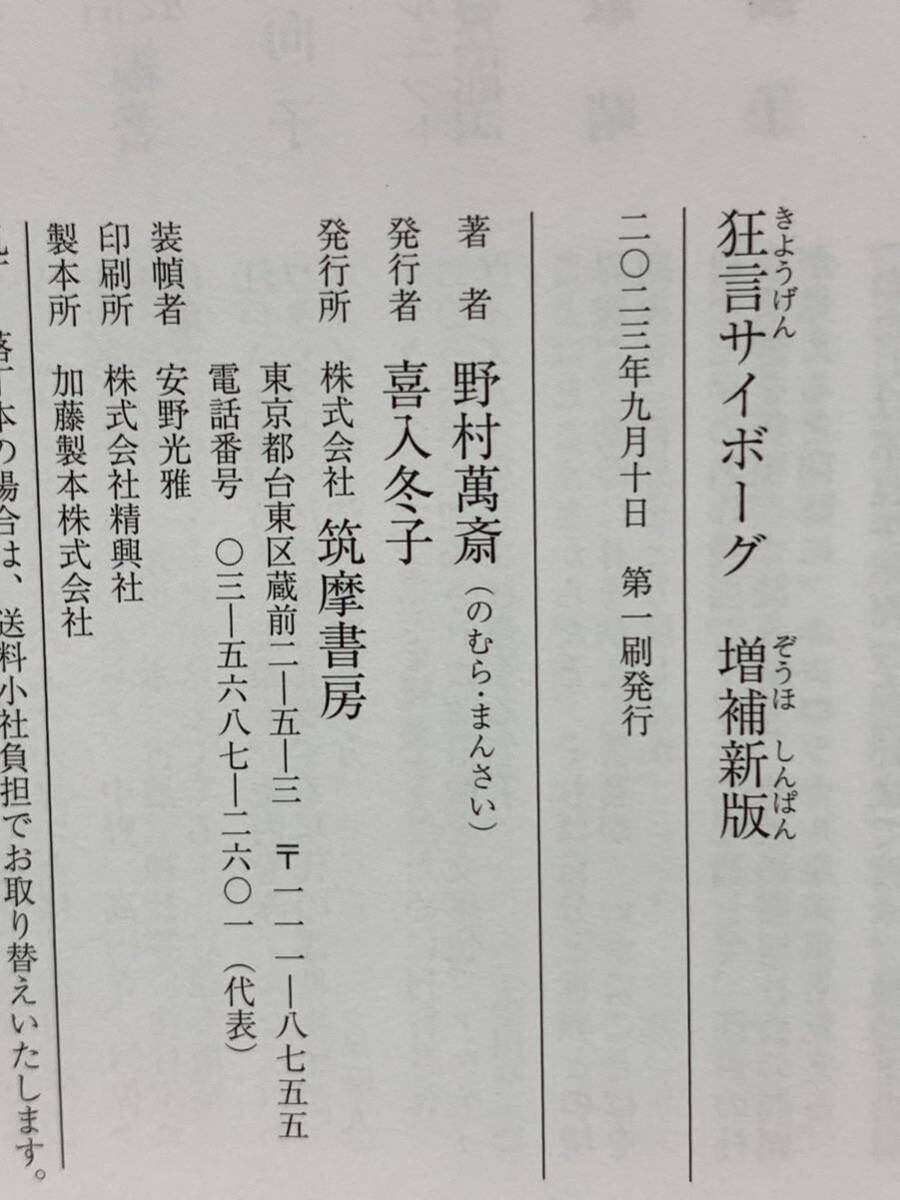 狂言サイボーグ　増補新版
きようげん　ぞうほ　しんぱん
二〇二三年九月十日　第一刷発行
著　者　野村萬斎（のむら・まんさい）
発行者　喜入冬子
発行所　株式会社　筑摩書房
東京都台東区蔵前二―五―三　〒一一一―八七五五
電話番号　〇三―五六八七―二六〇一（代表）
装幀者　安野光雅
印刷所　株式会社精興社
製本所　加藤製本株式会社
落丁本の場合は、送料小社負担でお取り替えいたします。